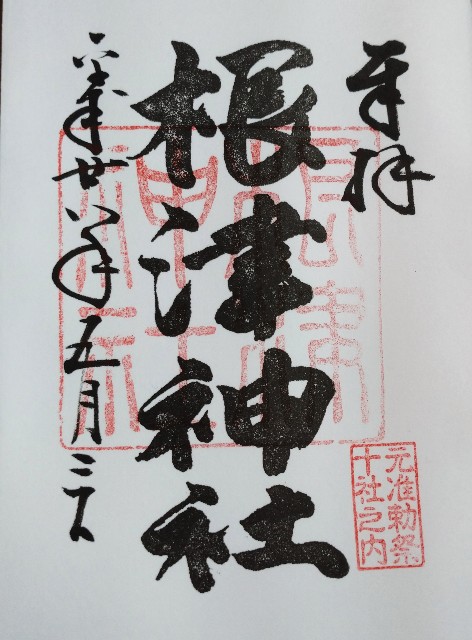 奉拝
根津神社
平成廿八年五月三日
根津
神社
元准勅祭
十社之内